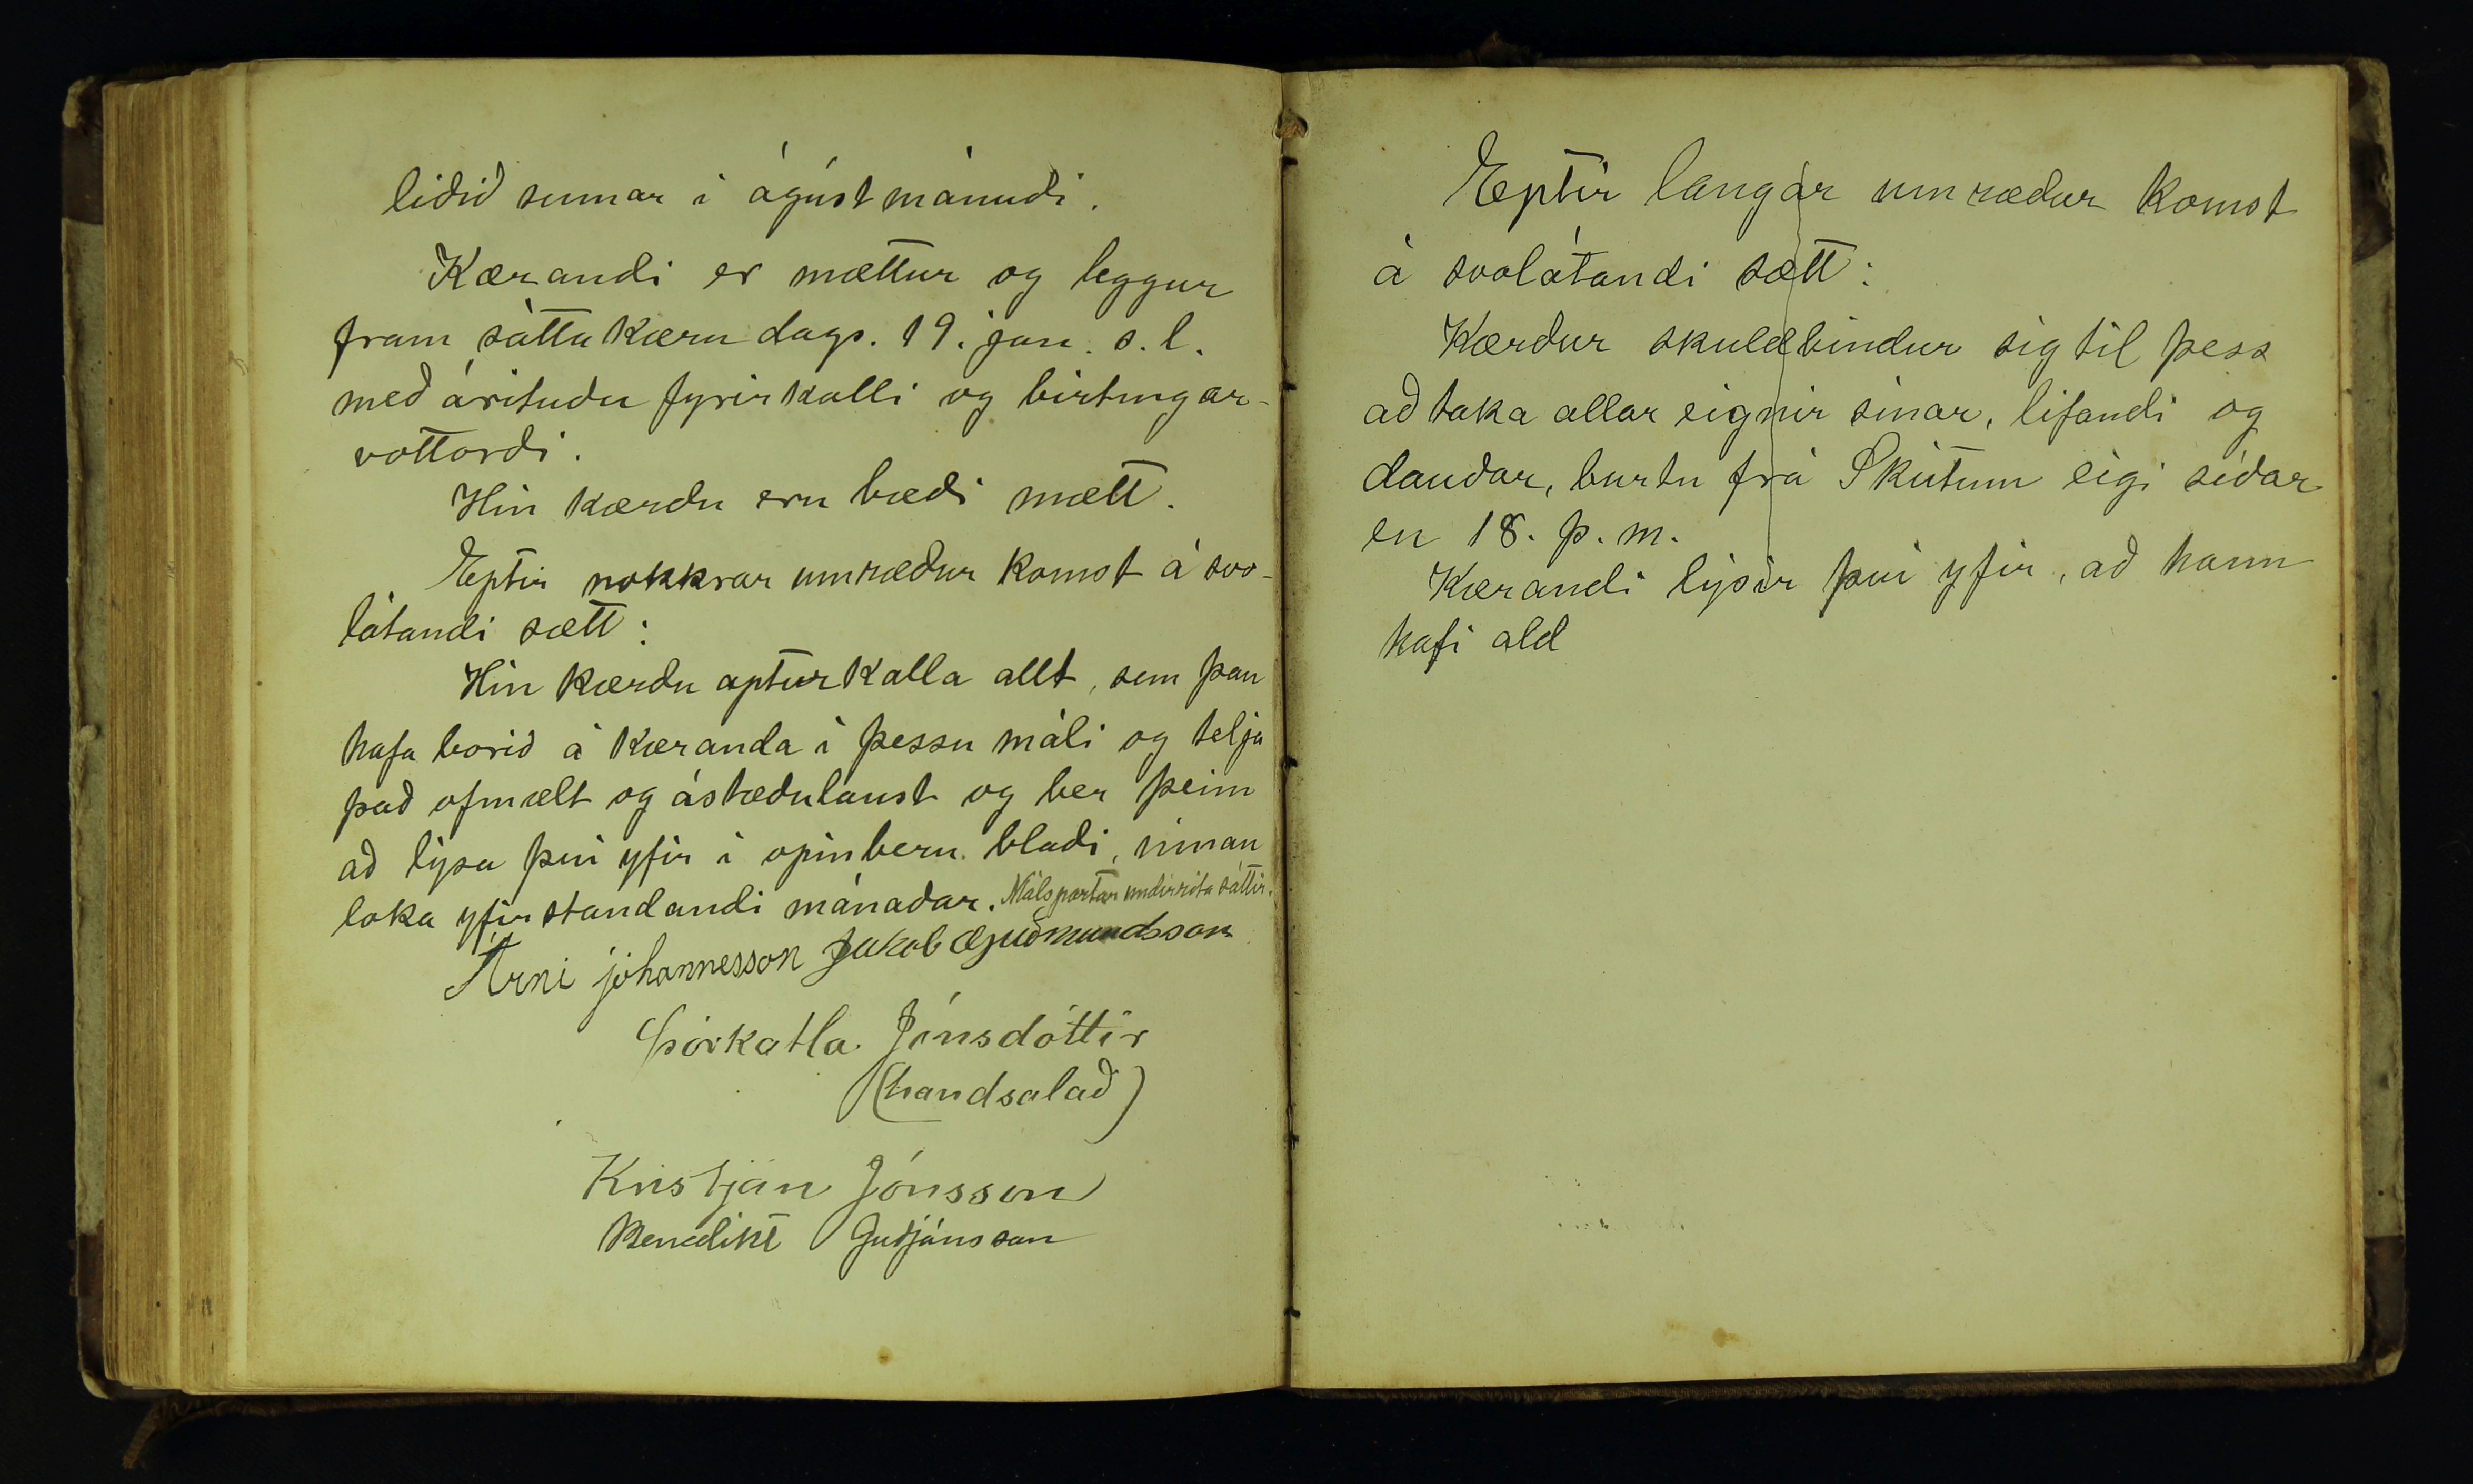 liðið sumar í ágústmánuði.
Kærandi er mættur og leggur
fram sáttakæru dags. 19. jan. s. l.
með árituðu fyrirkalli og birtingar-
vottorði.
Hin kærðu eru bæði mætt.
Eptir nokkrar umræður komst á svo-
látandi sætt:
Hin kærðu apturkalla allt, sem þau
hafa borið á kæranda í þessu máli og telja
það ofmælt og ástæðulaust og ber þeim
að lýsa því yfir í opinberu blaði, innan
loka yfirstandandi mánaðar. Málspartar undirrita sáttir.
Árni jóhannesson Jakob Guðmundsson
Þórkatla Jónsdóttir
(handsalað)
Kristján Jónsson
Benedikt Guðjónsson
Eptir langar umræður komst
á svolátandi sætt:
Kærður skuldbindur sig til þess
að taka allar eignir sínar, lifandi og
dauðar, burtu frá Skútum eigi síðar
en 18. þ. m.
Kærandi lýsir því yfir, að hann
hafi ald